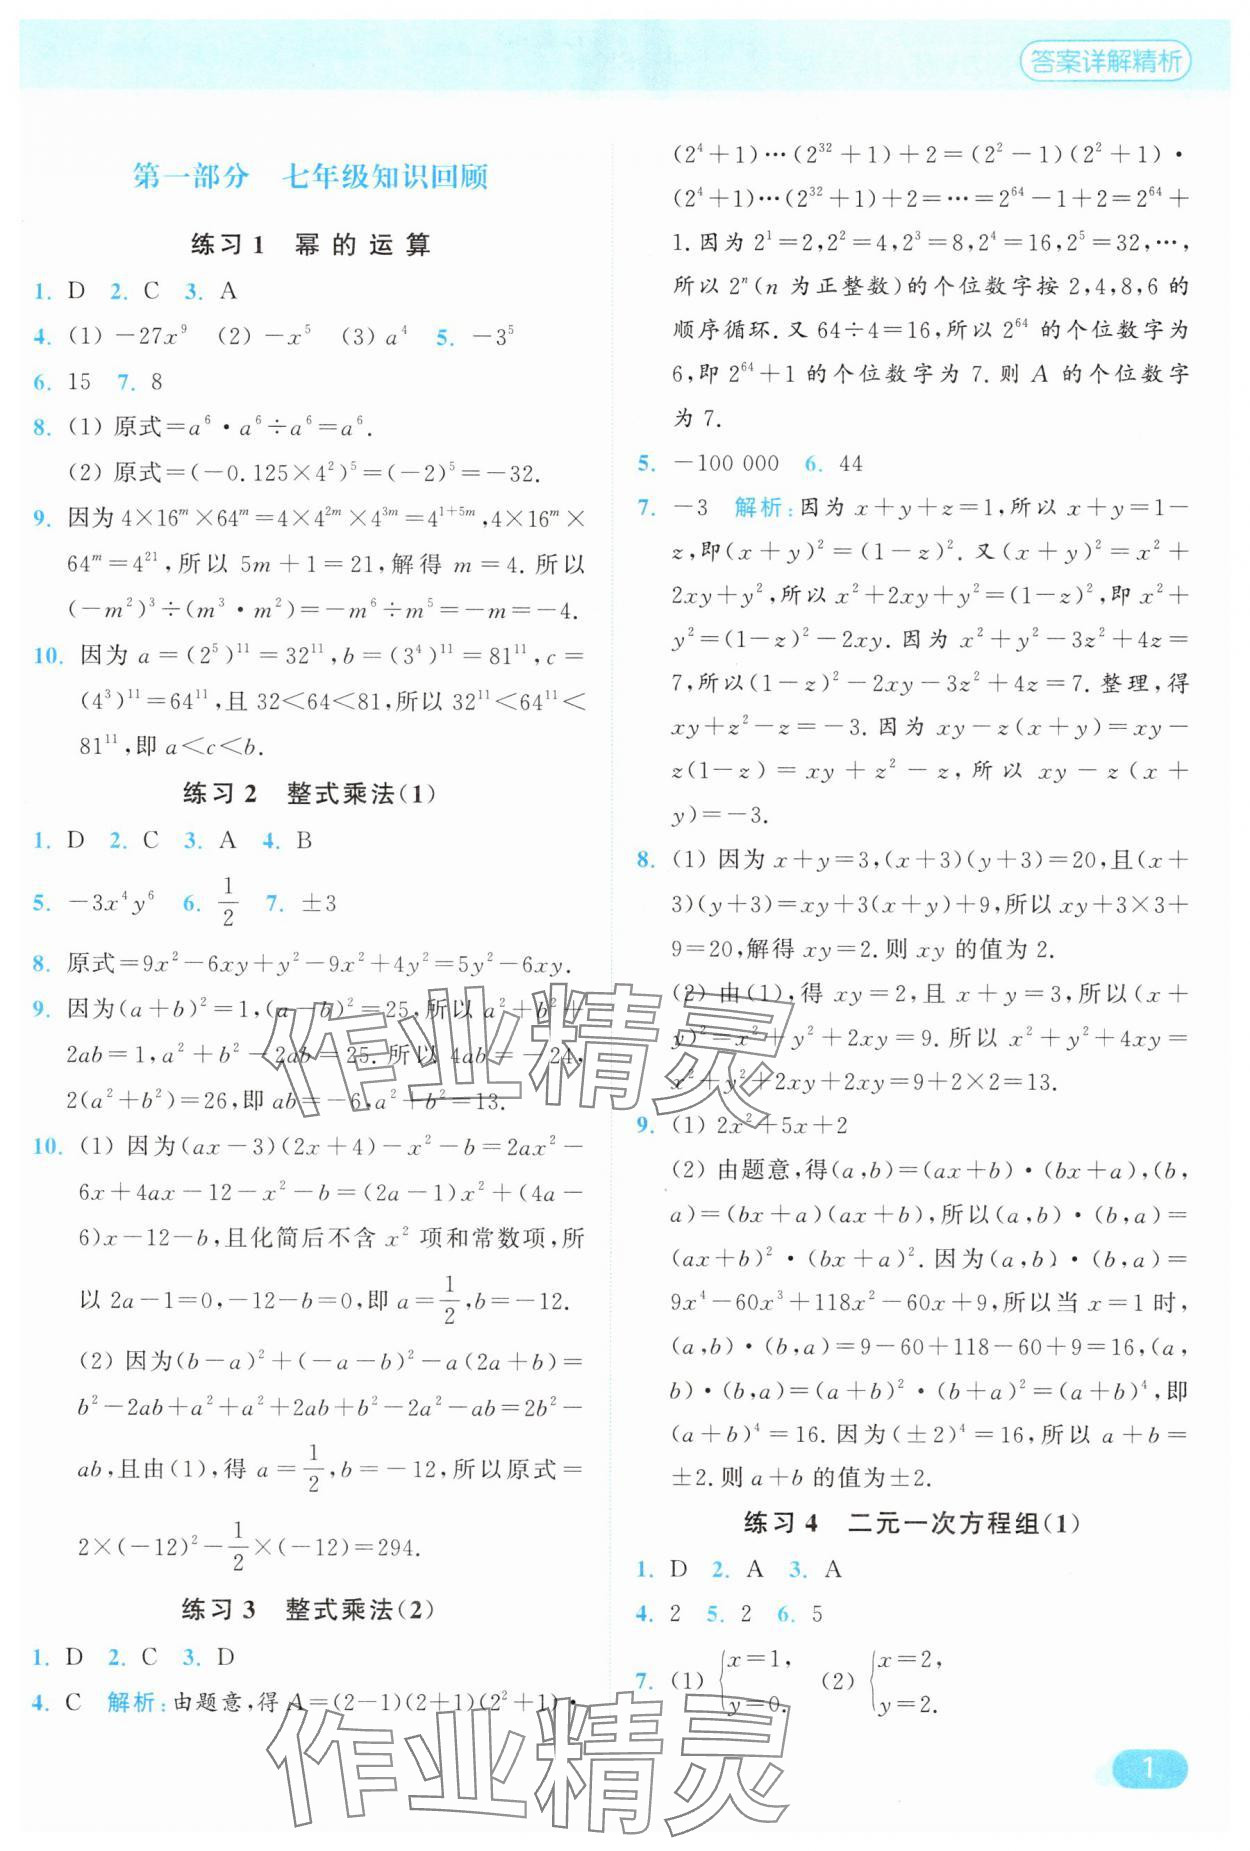 答案详解精析
第一部分 七年级知识回顾
练习1 幂的运算
1. D 2. C 3. A
4. (1)－27x⁹ (2)－x⁵ (3)a⁴ 5. －3⁵
6. 15 7. 8
8. (1) 原式＝a⁶・a⁶÷a⁶＝a⁶.
(2) 原式＝(－0.125×4²)⁵＝(－2)⁵＝－32.
9. 因为4×16ᵐ×64ᵐ＝4×4²ᵐ×4³ᵐ＝4¹⁺⁵ᵐ,4×16ᵐ×
64ᵐ＝4²¹,所以 5m＋1＝21,解得 m＝4. 所以
(－m²)³÷(m³・m²)＝－m⁶÷m⁵＝－m＝－4.
10. 因为 a＝(2⁵)¹¹＝32¹¹,b＝(3⁴)¹¹＝81¹¹,c＝
(4³)¹¹＝64¹¹,且 32＜64＜81,所以 32¹¹＜64¹¹＜
81¹¹,即 a＜c＜b.
练习2 整式乘法(1)
1. D 2. C 3. A 4. B
5. －3x⁴y⁶ 6. 1/2 7. ±3
8. 原式＝9x²－6xy＋y²－9x²＋4y²＝5y²－6xy.
9. 因为(a＋b)²＝1,(a－b)²＝25,所以 a²＋b²＋
2ab＝1,a²＋b²－2ab＝25. 所以 4ab＝－24,
2(a²＋b²)＝26,即 ab＝－6,a²＋b²＝13.
10. (1) 因为(ax－3)(2x＋4)－x²－b＝2ax²－
6x＋4ax－12－x²－b＝(2a－1)x²＋(4a－
6)x－12－b,且化简后不含 x² 项和常数项,所
以 2a－1＝0,－12－b＝0,即 a＝1/2,b＝－12.
(2) 因为(b－a)²＋(－a－b)²－a(2a＋b)＝
b²－2ab＋a²＋a²＋2ab＋b²－2a²－ab＝2b²－
ab,且由(1),得 a＝1/2,b＝－12,所以原式＝
2×(－12)²－1/2×(－12)＝294.
练习3 整式乘法(2)
1. D 2. C 3. D
4. C 解析:由题意,得 A＝(2－1)(2＋1)(2²＋1)・
(2⁴＋1)…(2³²＋1)＋2＝(2²－1)(2²＋1)・
(2⁴＋1)…(2³²＋1)＋2＝…＝2⁶⁴－1＋2＝2⁶⁴＋
1. 因为 2¹＝2,2²＝4,2³＝8,2⁴＝16,2⁵＝32,…,
所以 2ⁿ(n 为正整数)的个位数字按 2,4,8,6 的
顺序循环. 又 64÷4＝16,所以 2⁶⁴ 的个位数字为
6,即 2⁶⁴＋1 的个位数字为 7. 则 A 的个位数字
为 7.
5. －100 000 6. 44
7. －3 解析:因为 x＋y＋z＝1,所以 x＋y＝1－
z,即(x＋y)²＝(1－z)². 又(x＋y)²＝x²＋
2xy＋y²,所以 x²＋2xy＋y²＝(1－z)²,即 x²＋
y²＝(1－z)²－2xy. 因为 x²＋y²－3z²＋4z＝
7,所以(1－z)²－2xy－3z²＋4z＝7. 整理,得
xy＋z²－z＝－3. 因为 xy－z(x＋y)＝xy－
z(1－z)＝xy＋z²－z,所以 xy－z(x＋
y)＝－3.
8. (1) 因为 x＋y＝3,(x＋3)(y＋3)＝20,且(x＋
3)(y＋3)＝xy＋3(x＋y)＋9,所以 xy＋3×3＋
9＝20,解得 xy＝2. 则 xy 的值为 2.
(2) 由(1),得 xy＝2,且 x＋y＝3,所以(x＋
y)²＝x²＋y²＋2xy＝9. 所以 x²＋y²＋4xy＝
x²＋y²＋2xy＋2xy＝9＋2×2＝13.
9. (1) 2x²＋5x＋2
(2) 由题意,得(a,b)＝(ax＋b)・(bx＋a),(b,
a)＝(bx＋a)(ax＋b),所以(a,b)・(b,a)＝
(ax＋b)²・(bx＋a)². 因为(a,b)・(b,a)＝
9x⁴－60x³＋118x²－60x＋9,所以当 x＝1 时,
(a,b)・(b,a)＝9－60＋118－60＋9＝16,(a,
b)・(b,a)＝(a＋b)²・(b＋a)²＝(a＋b)⁴,即
(a＋b)⁴＝16. 因为(±2)⁴＝16,所以 a＋b＝
±2. 则 a＋b 的值为±2.
练习4 二元一次方程组(1)
1. D 2. A 3. A
4. 2 5. 2 6. 5
7. (1) {x＝1, y＝0. (2) {x＝2, y＝2.
作业精灵
作业精灵
1